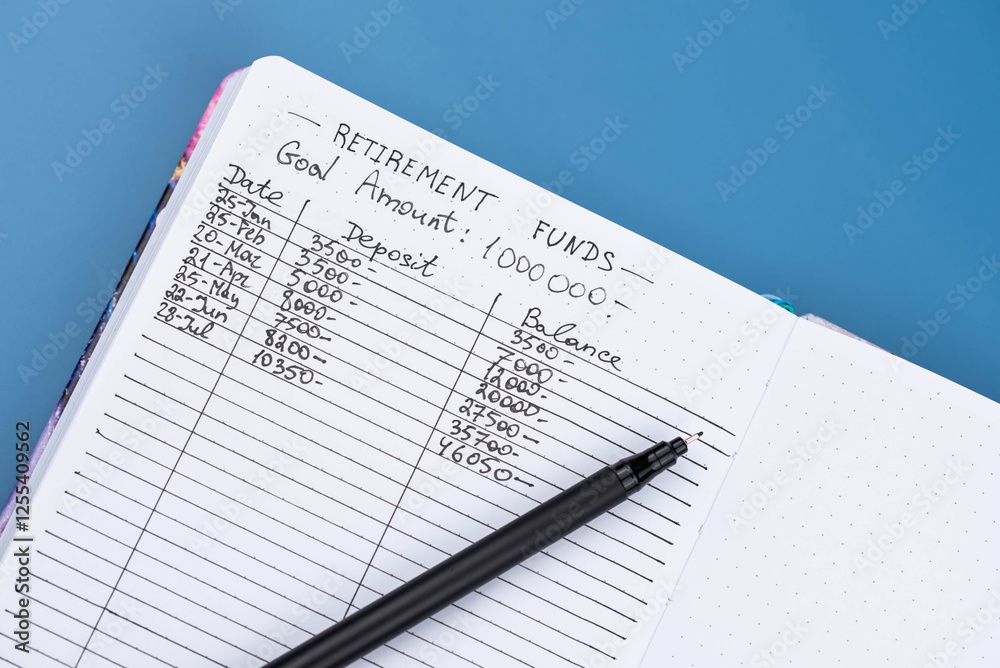 RETIREMENT FUNDS
Goal Amount: 1000000.-
Date Deposit Balance
25-Jan 3500.- 3500.-
25-Feb 3500.- 7000.-
20-Mar 5000.- 12000.-
21-Apr 8000.- 20000.-
25-May 7500.- 27500.-
22-Jun 8200.- 35700.-
28-Jul 10350.- 46050.-
Adobe Stock | #1255409562